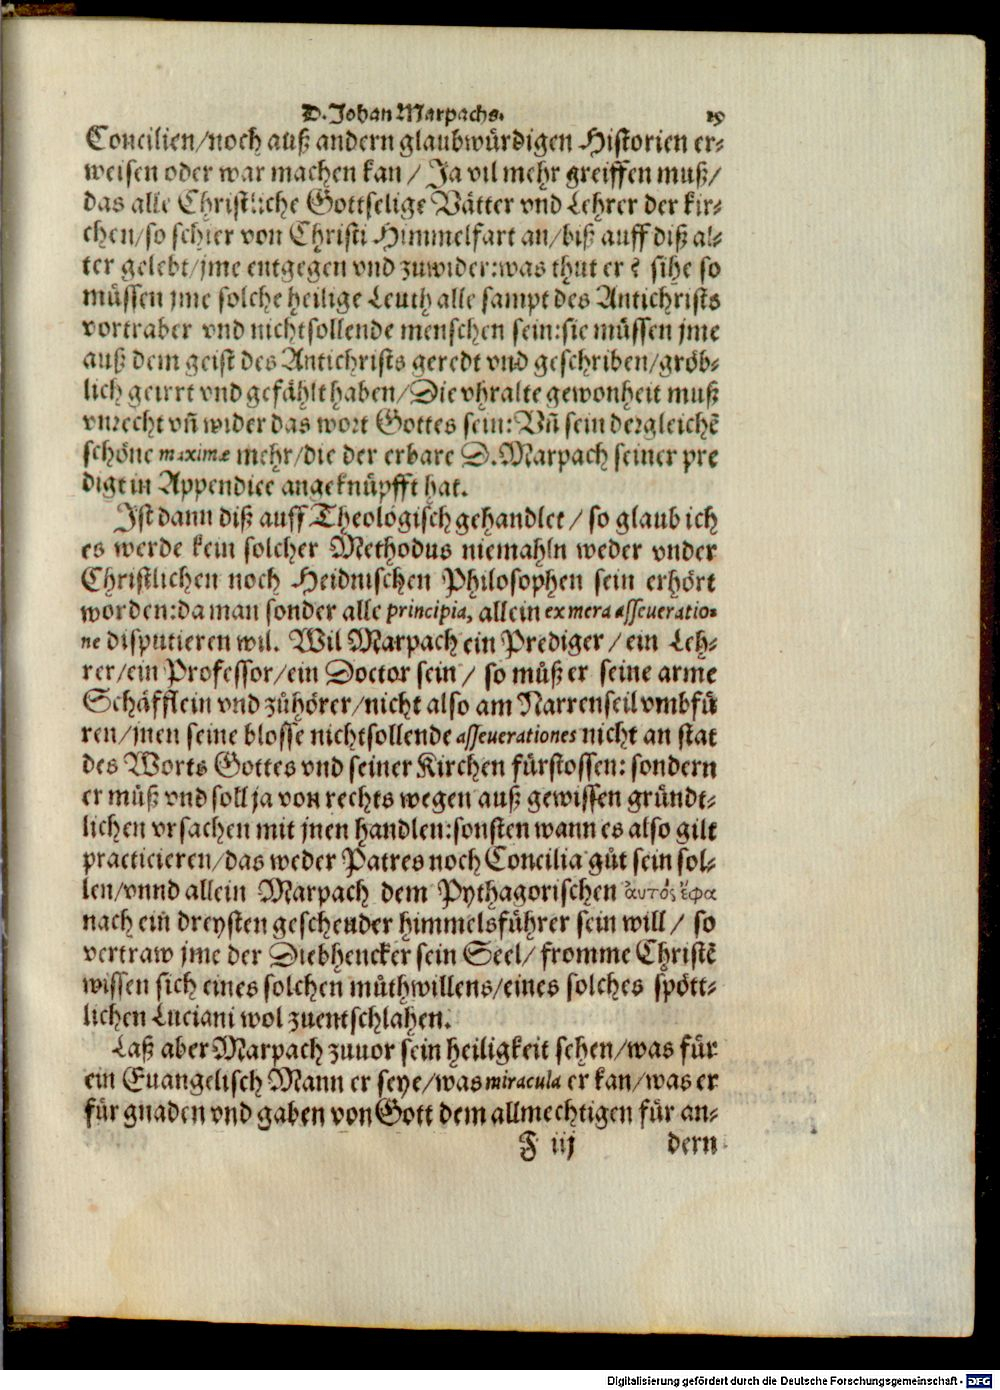 D. Johan Marpachs.
Concilien/noch auß andern glaubwürdigen Historien er-
weisen oder war machen kan / Ja vil mehr greiffen muß/
das alle Christliche Gottselige Vätter vnd Lehrer der kir-
chen/so schier von Christi Himmelfart an/biß auff diß al-
ter gelebt/jme entgegen vnd zuwider:was thut er? sihe so
müssen jme solche heilige Leuth alle sampt des Antichrists
vortraber vnd nichtsollende menschen sein:sie müssen jme
auß dem geist des Antichrists geredt vnd geschriben/gröb-
lich geirrt vnd gefählt haben/Die vhralte gewonheit muß
vnrecht vñ wider das wort Gottes sein: Vñ sein dergleichẽ
schöne maximæ mehr/die der erbare D. Marpach seiner pre
digt in Appendice angeknüpfft hat.
Ist dann diß auff Theologisch gehandlet / so glaub ich
es werde kein solcher Methodus niemahln weder vnder
Christlichen noch Heidnischen Philosophen sein erhört
worden:da man sonder alle principia, allein ex mera asseueratio-
ne disputieren wil. Wil Marpach ein Prediger / ein Leh-
rer/ein Professor/ein Doctor sein / so můß er seine arme
Schäfflein vnd zůhörer/nicht also am Narrenseil vmbfü
ren/jnen seine blosse nichtsollende asseuerationes nicht an stat
des Worts Gottes vnd seiner Kirchen fürstossen: sondern
er můß vnd soll ja von rechts wegen auß gewissen gründt-
lichen vrsachen mit jnen handlen:sonsten wann es also gilt
practicieren/das weder Patres noch Concilia gůt sein sol-
len/vnnd allein Marpach dem Pythagorischen αυτὸς ἔφα
nach ein dreysten geschender himmelsführer sein will / so
vertraw jme der Diebhencker sein Seel/ fromme Christẽ
wissen sich eines solchen můthwillens/eines solches spött-
lichen Luciani wol zuentschlahen.
Laß aber Marpach zuuor sein heiligkeit sehen/was für
ein Euangelisch Mann er seye/was miracula er kan/was er
für gnaden vnd gaben von Gott dem allmechtigen für an-
F iij dern
Digitalisierung gefördert durch die Deutsche Forschungsgemeinschaft - DFG